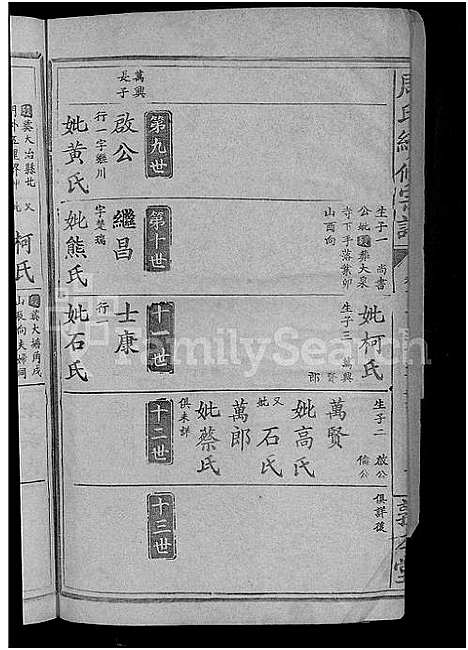 周氏續修宗譜
生子一 尚書
公妣葬大泉
寺下手落葉卯
山酉向
妣柯氏
生子三 萬興 賢 郎
生子二 啟公 倫公
萬賢
妣高氏
又妣石氏
萬郎
妣蔡氏
俱未詳
俱詳後
第九世
第十世
十一世
十二世
十三世
萬興長子
啟公
行一字雞川
妣黃氏
繼昌
字楚瑞
妣熊氏
士康
行一
妣石氏
葬大冶縣北
又
柯氏
葬大塘角戌
FamilySearch